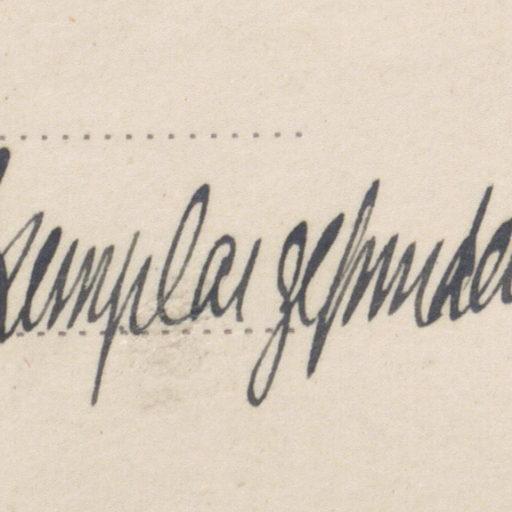 xemplar gefunden